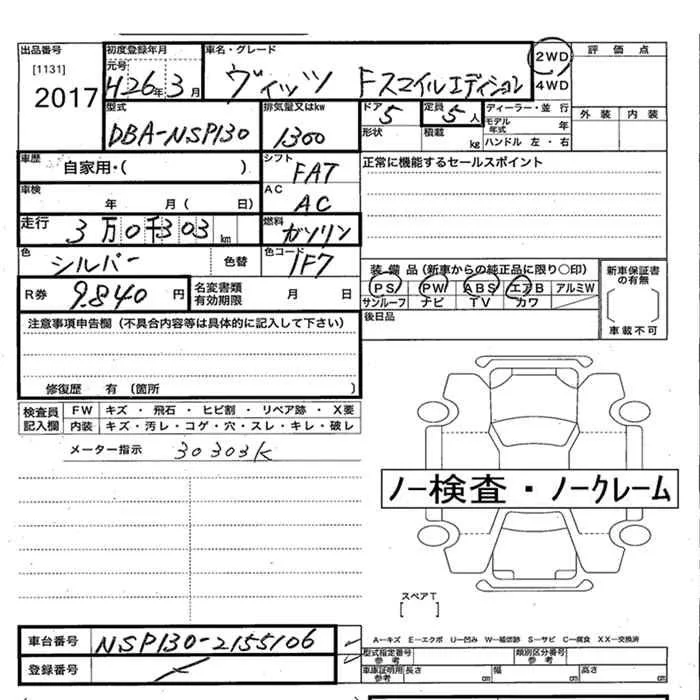 出品番号 初度登録年月 車名・グレード 評価点
[1131] 元号 H26年3月 ヴィッツ Fスマイルエディション 2WD 4WD
2017 外装 内装
型式 排気量又はkw ドア 定員 ディーラー・並行
DBA-NSP130 1300 5 5人 モデル年式 年
形状 積載 kg ハンドル 左・右
車歴 自家用・( ) シフト FAT 正常に機能するセールスポイント
車検 年 月( 日) AC AC
走行 3万0千303km 燃料 ガソリン
色 シルバー 色替 色コード 1F7 装備品(新車からの純正品に限り○印) 新車保証書の有無
R券 9.840円 名変書類有効期限 月 日 PS PW ABS エアB アルミW
サンルーフ ナビ TV カワ
[ ]
注意事項申告欄(不具合内容等は具体的に記入して下さい) 後日品 車載不可
修復歴 有(箇所 )
検査員記入欄 FW キズ・飛石・ヒビ割・リペア跡・X要
内装 キズ・汚レ・コゲ・穴・スレ・キレ・破レ
メーター指示 30303K
ノー検査・ノークレーム
スペアT
[ ]
車台番号 NSP130-2155106 A-キズ E-エクボ U-凹み W-補修跡 S-サビ C-腐食 XX-交換済
登録番号 型式指定番号 参考 類別区分番号 参考
車庫証明用参考 長さ cm 幅 cm 高さ cm